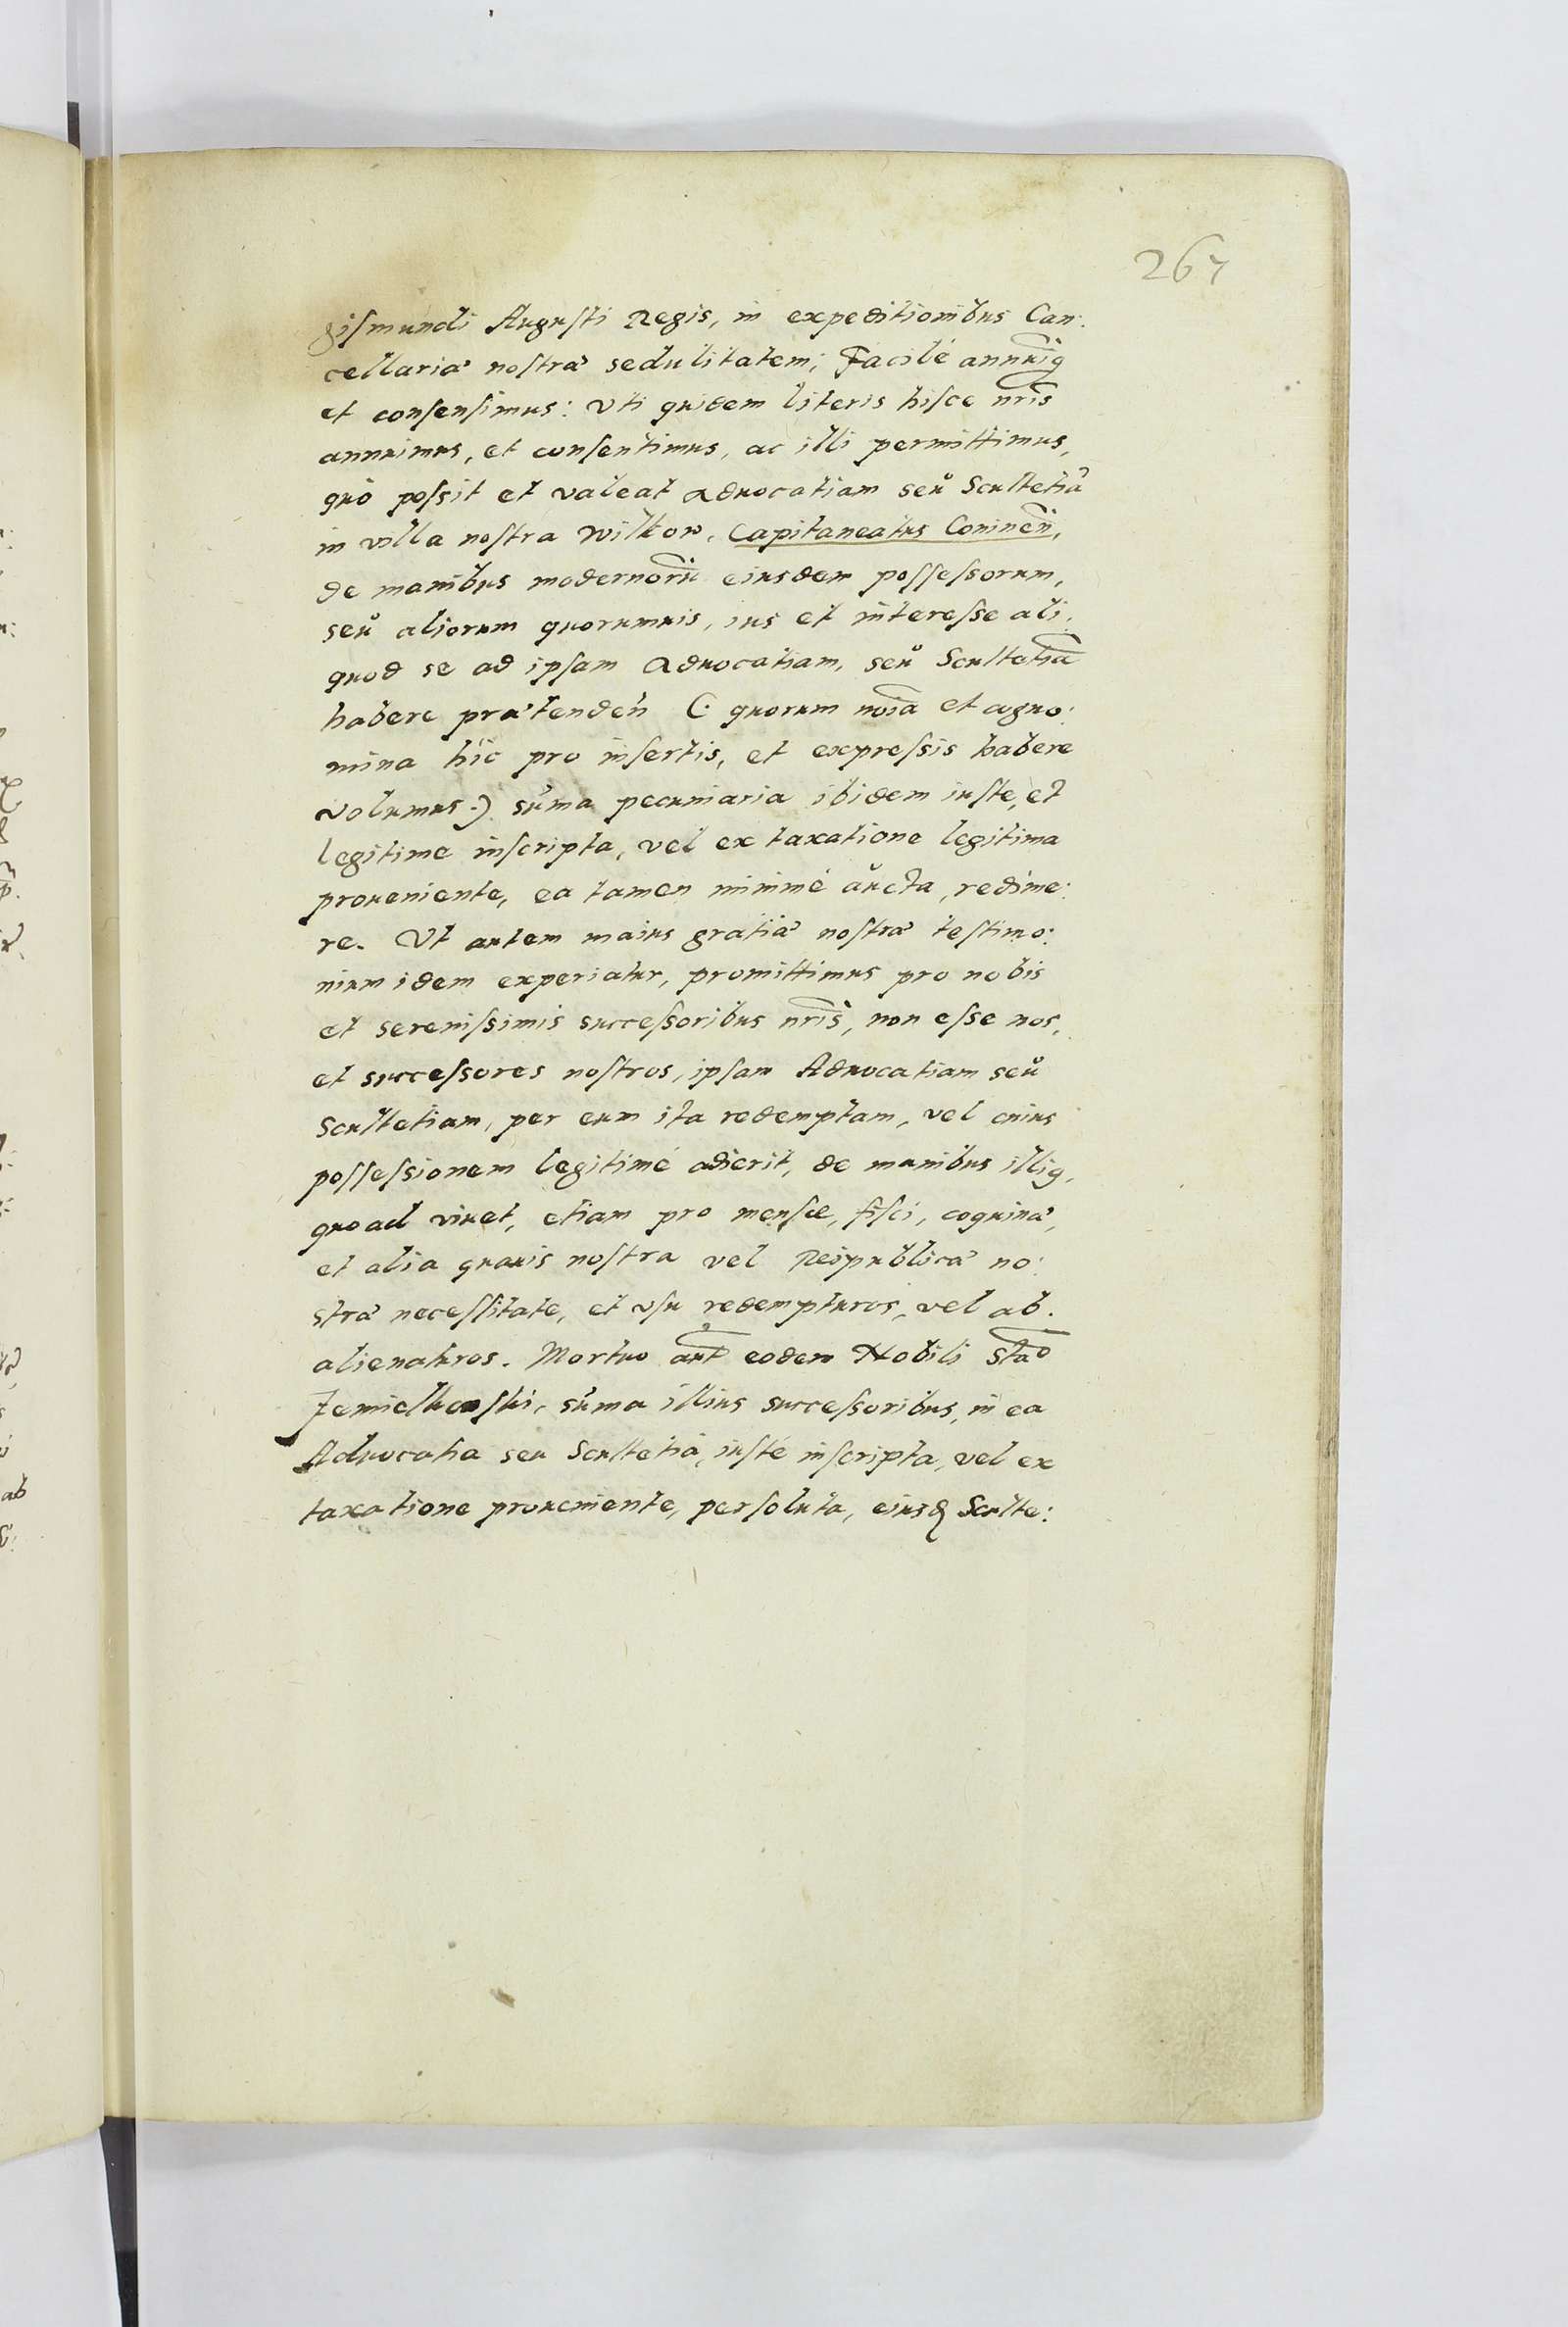 267
gismundi Augusti Regis, in expeditionibus Can:
cellariæ nostræ sedulitatem; Facilè annuimꝰ
et consensimus: Vti quidem literis hisce nr̃is
annuimus, et consentimus, ac illi permittimus,
quò possit et valeat Aduocatiam seu Scultetiã
in villa nostra Wilkow, Capitaneatus Coninen̄,
de manibus modernorũ eiusdem possessorum,
seu aliorum quorumuis, ius et interesse ali:
quod se ad ipsam Aduocatiam, seu Scultetiã
habere prætenden̄ (: quorum noĩa et cogno:
mina hîc pro insertis, et expressis habere
volumus :) sum̃a pecuniaria ibidem iuste, et
legitime inscripta, vel ex taxatione legitima
proueniente, ea tamen minimè aucta, redime:
re. Vt autem maius gratiæ nostræ testimo:
nium idem experiatur, promittimus pro nobis
et serenissimis successoribus nr̃is, non esse nos,
et successores nostros, ipsam Aduocatiam seu
Scultetiam, per eum ita redemptam, vel cuius
possessionem legitimè adierit, de manibus illiꝰ,
quoad viuet, etiam pro mensæ, fisci, coquinæ,
et alia quauis nostra vel Reipublicæ no:
stræ necessitate, et vsu redempturos, vel ab.
alienaturos. Mortuo aut̃ eodem Nobili Stão
sum̃a illius successoribus, in ea
Aduocatia seu Scultetia, iustè inscripta, vel ex
taxatione proueniente, persoluta, eiusd Sculte:
ab